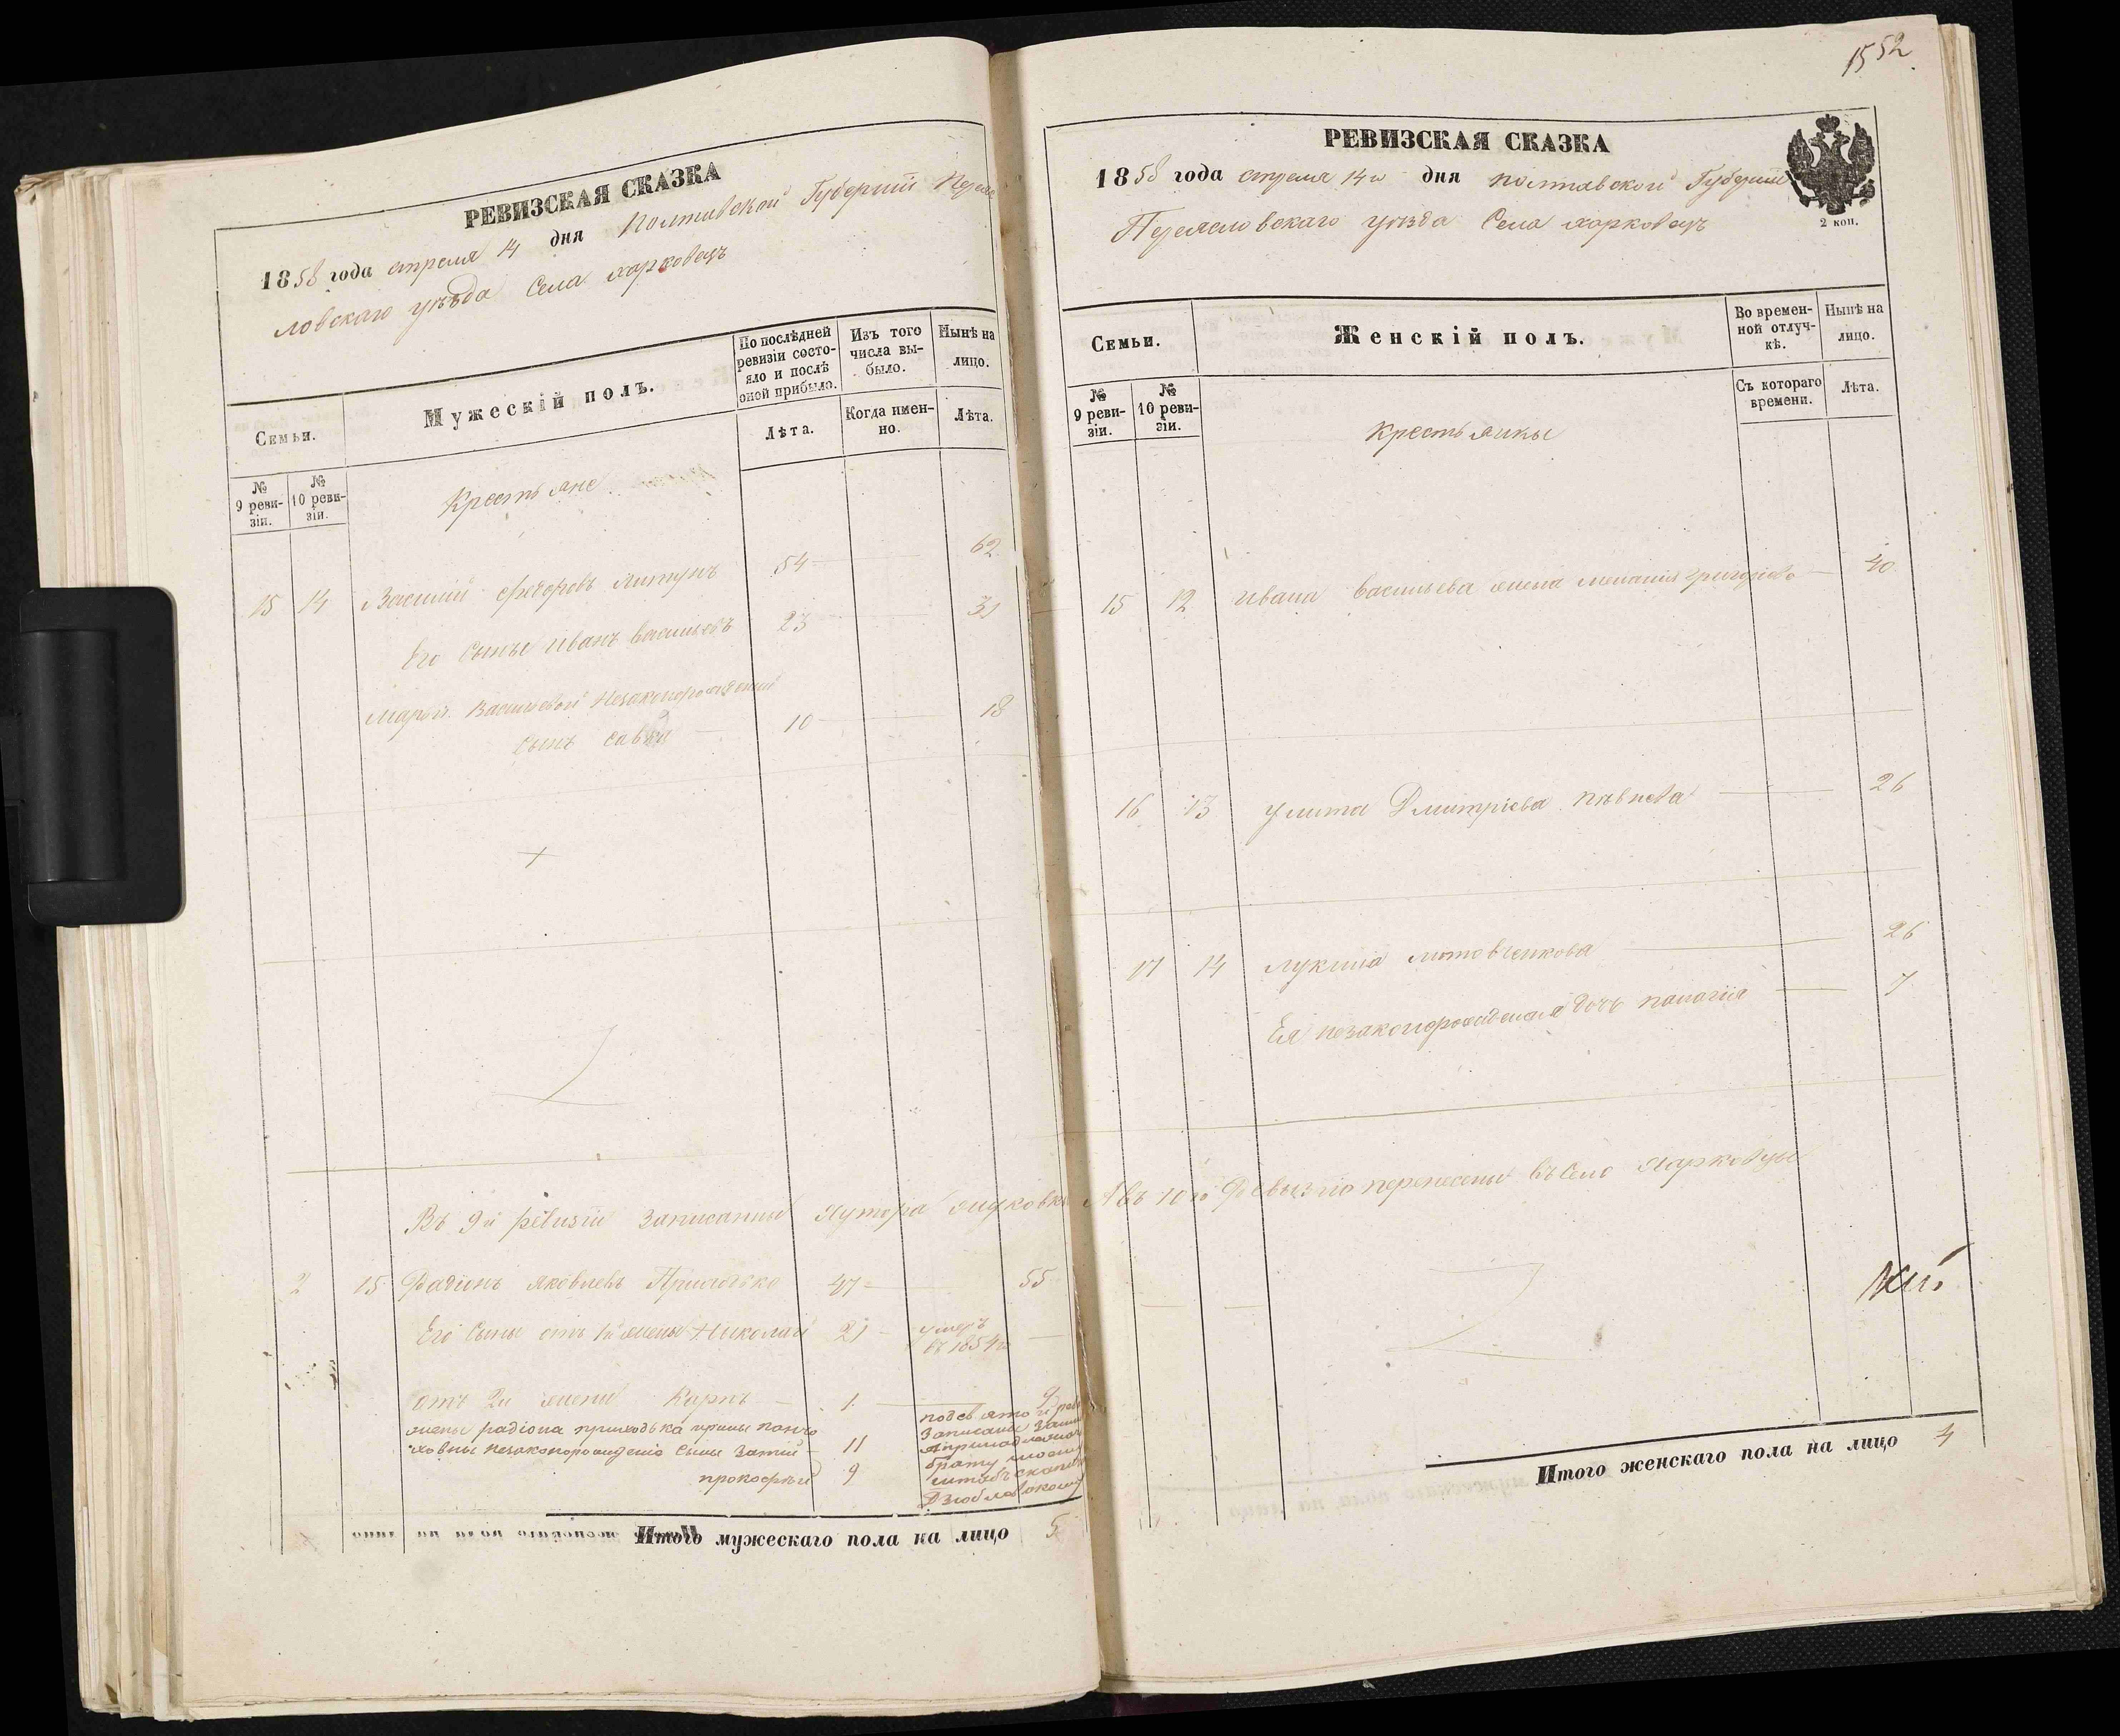 РЕВИЗСКАЯ СКАЗКА
1858 года апреля 14 дня Полтавской Губернии Переяс
ловскаго уѣзда Села харковецъ
Семьи.
Мужескій полъ.
По послѣдней ревизіи состояло и послѣ оной прибыло.
Изъ того числа выбыло.
Нынѣ на лицо.
№ 9 ревизіи.
№ 10 ревизіи.
Лѣта.
Когда именно.
Лѣта.
Крестьяне
15 14 Василий Федоровъ 54 62
Его Сыны Иванъ Васильевъ 23 31
Марьи Васильевой Незаконорожденный
сынъ Савва 10 18
Въ 9й ревизіи Записанные Хутора
2 15 Радіонъ Яковлевъ Приходько 47 55
Его Сыны отъ 1й жены Николай 21 умеръ
въ 1854
отъ 2й жены Карпъ 1 9
жены радіона приходька
незаконорожденіе Сыны 11
прокофѣй 9
записаны
брату моему
штабъ
Итого мужескаго пола на лицо 5
1552
РЕВИЗСКАЯ СКАЗКА
2 коп.
1858 года апреля 14го дня полтавской Губерніи
Переясловскаго уѣзда Села харковецъ
Семьи.
Женскій полъ.
Во временной отлучкѣ.
Нынѣ на лицо.
№ 9 ревизіи.
№ 10 ревизіи.
Съ котораго времени.
Лѣта.
Крестьянки
15 12 Ивана Васильева жена Меланія григорьева 40
16 13 Улита Дмитріева 26
17 14 Лукия литовченкова 26
Ея незаконорожденная дочь палагія 7
А въ 10ю Ревизію перенесены въ Село Харковцы
Итого женскаго пола на лицо 4